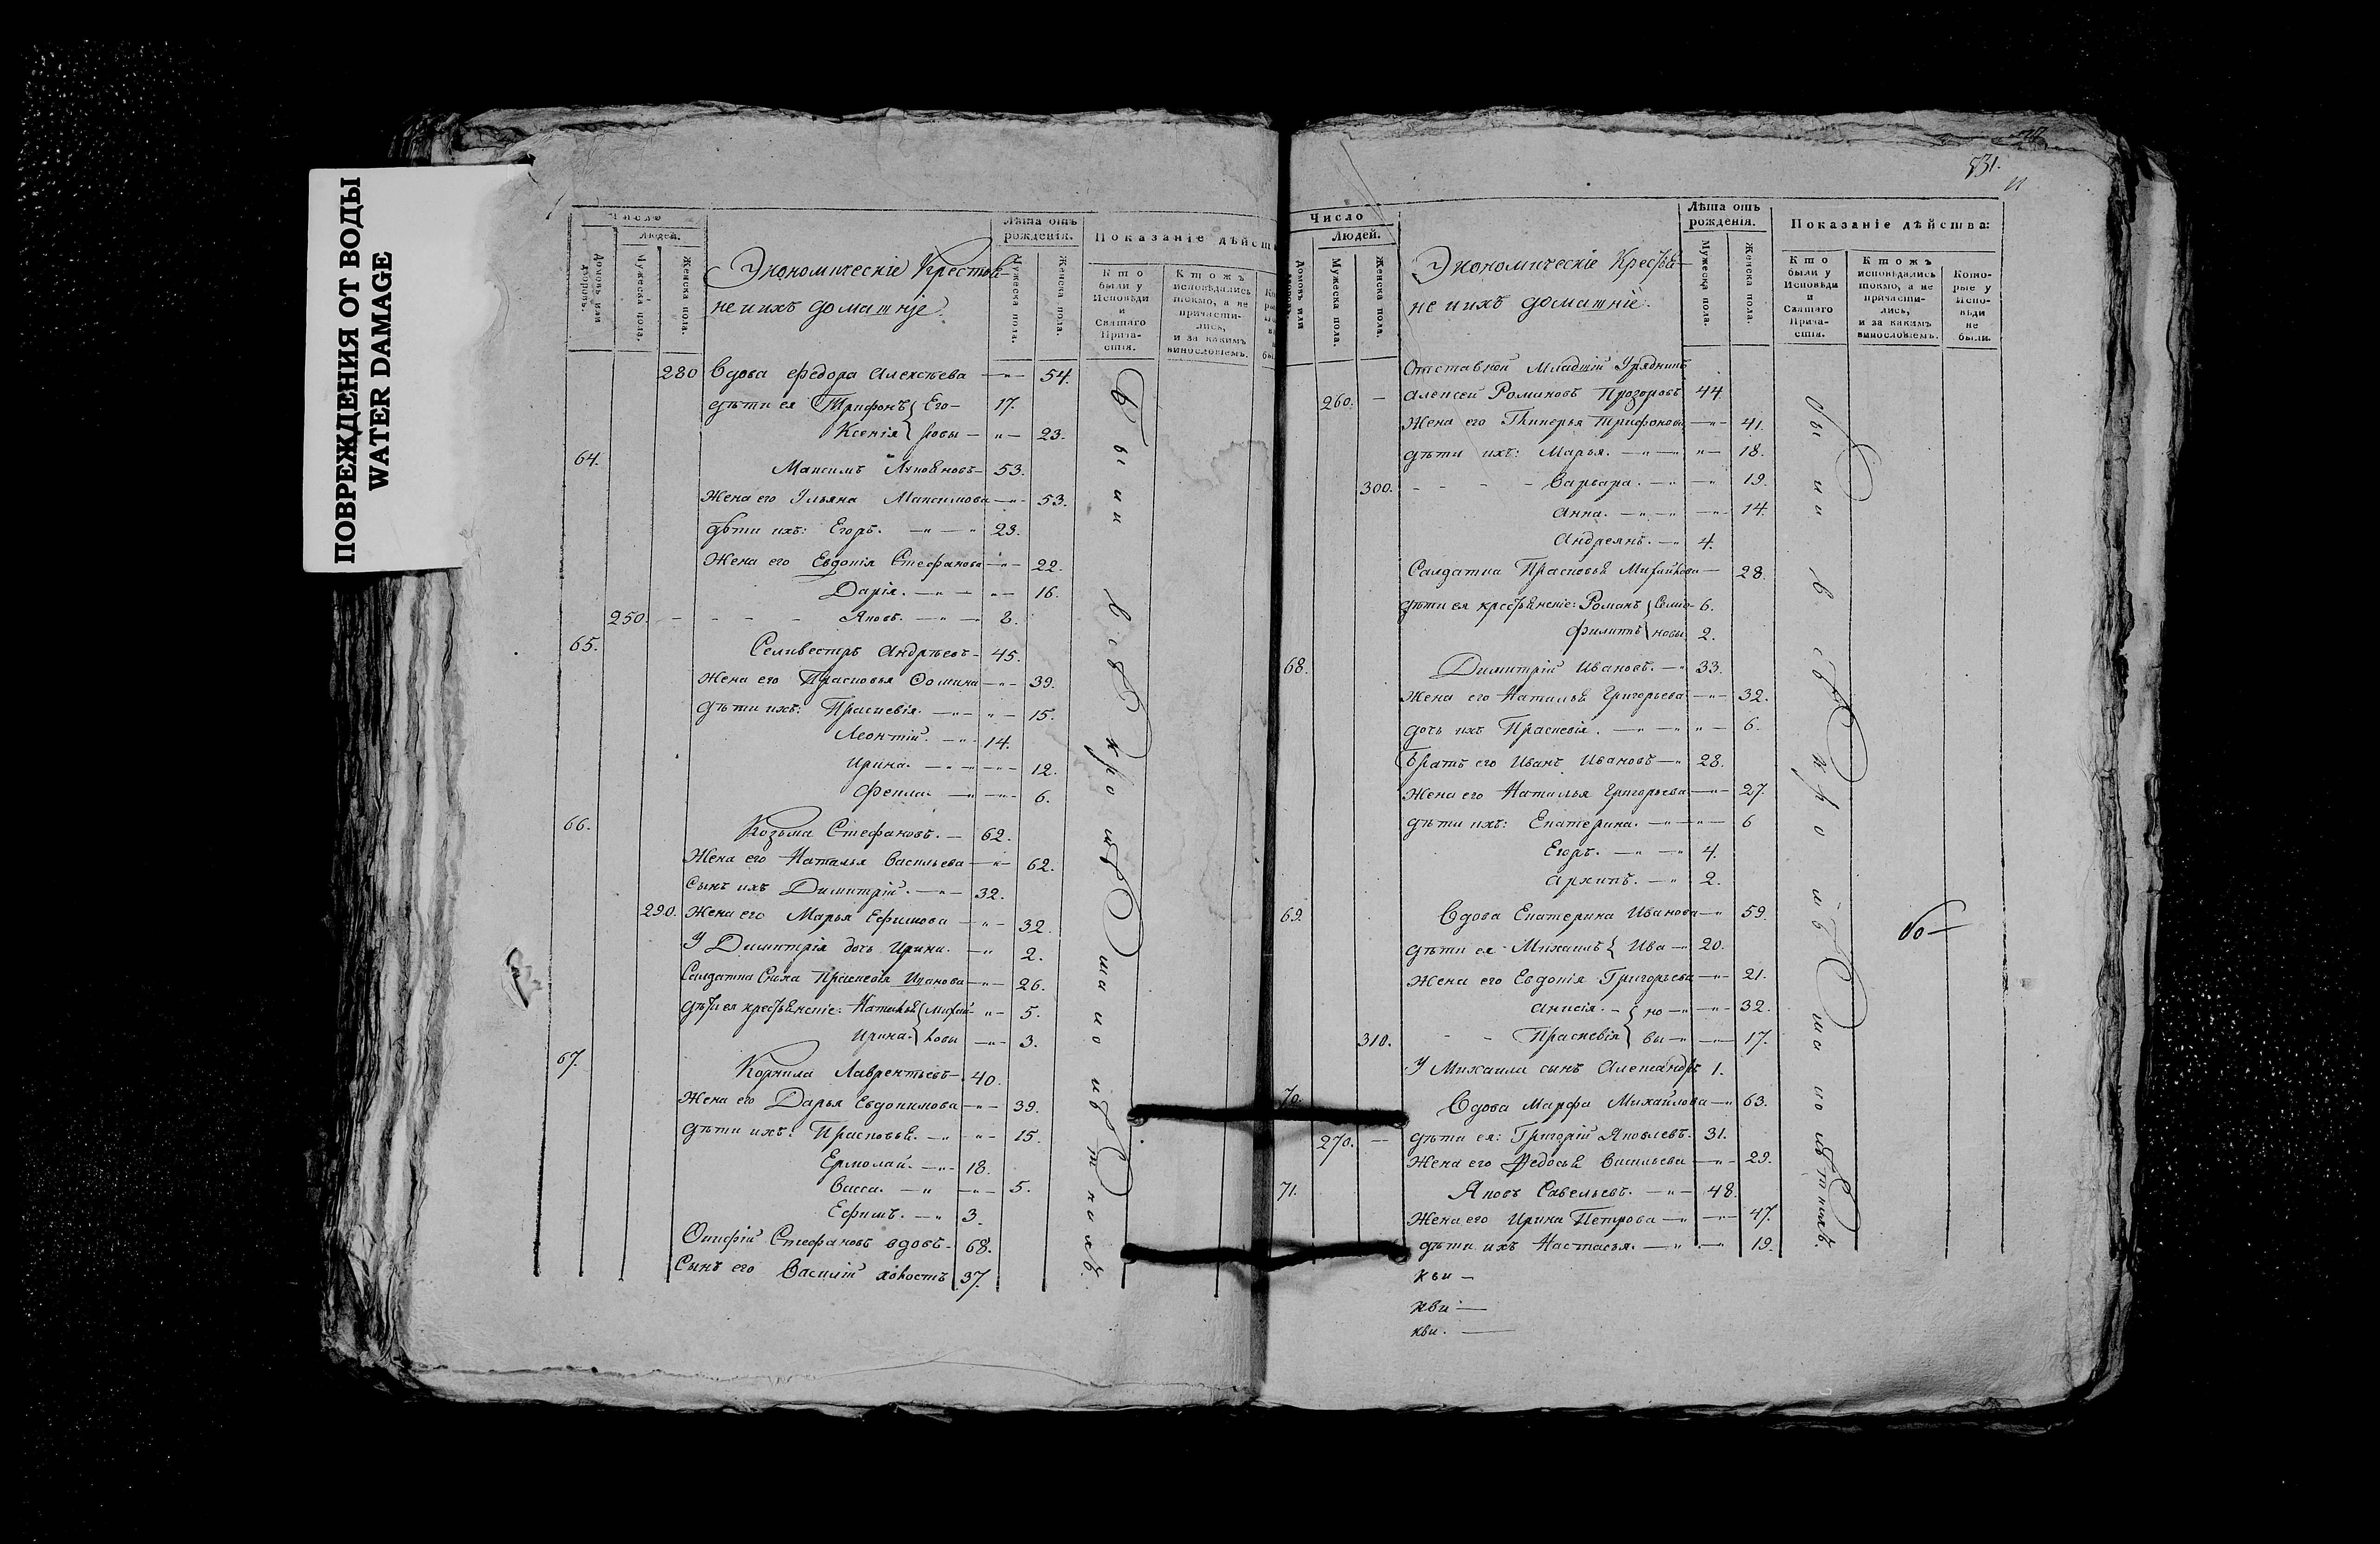 ПОВРЕЖДЕНИЯ ОТ ВОДЫ
WATER DAMAGE
Число
Людей.
Домовъ или дворовъ.
Мужеска пола.
Женска пола.
Экономическіе Крестья-
не и ихъ домашніе.
Лѣта отъ рожденія.
Мужеска пола.
Женска пола.
Показаніе дѣйст
Кто были у Исповѣди и Святаго Прича-стія.
Ктожъ исповѣдались токмо, а не причасти-лись, и за какимъ винословіемъ.
280 Вдова Федора Алексѣева — 54.
дѣти ея Трифонъ { Его- 17.
Ксенія } ровы — 23.
64. Максимъ 53.
Жена его Ульяна Максимова — 53.
дѣти ихъ: Егоръ. — 23.
Жена его Евдокія Стефанова — 22.
Дарія. — 16.
250. Яковъ. — 8.
65. Селивестръ Андрѣевъ - 45.
Жена его Прасковья Фомина — 39.
дѣти ихъ: Праскевія. — 15.
Леонтій. — 14.
Ирина. — 12.
Фекла. — 6.
66. Козьма Стефановъ. — 62.
Жена его Наталья Васильева — 62.
Сынъ ихъ Димитрій. — 32.
290. Жена его Марья Ефимова — 32.
У Димитрія дочь Ирина. — 2.
Салдатка Сноха Праскевія Иванова — 26.
дѣти ея крестьянскіе: Наталья { Михай- 5.
Ирина. } ловы — 3.
67. Корнила Лаврентьевъ — 40.
Жена его Дарья Евдокимова — 39.
дѣти ихъ: Прасковья. — 15.
Ермолай. — 18.
Васса. — 5.
Ефимъ. — 3.
Онисій Стефановъ вдовъ. 68.
Сынъ его Василій холостъ 37.
Были всѣ кромѣ малолѣтнихъ.
531.
11
Число
Людей.
Домовъ или
Мужеска пола.
Женска пола.
Экономическіе Крестья-
не и ихъ домашніе.
Лѣта отъ рожденія.
Мужеска пола.
Женска пола.
Показаніе дѣйства:
Кто были у Исповѣди и Святаго Прича-стія.
Ктожъ исповѣдались токмо, а не причасти-лись, и за какимъ винословіемъ.
Кото-рые у Испо-вѣди не были.
Отставной Младшій Урядникъ
260. — Алексей Романовъ Прозоровъ 44.
Жена его Гликерья Трифонова — 41.
дѣти ихъ: Марья. — 18.
300. Варвара. — 19.
Анна. — 14.
Андреянъ. — 4.
Салдатка Прасковья Михайлова — 28.
дѣти ея крестьянскіе: Романъ 6.
Филиппъ 2.
68. Димитрій Ивановъ. — 33.
Жена его Наталья Григорьева — 32.
дочь ихъ Праскевія. — 6.
Братъ его Иванъ Ивановъ — 28.
Жена его Наталья Григорьева — 27.
дѣти ихъ: Екатерина. — 6
Егоръ. — 4.
Архипъ. — 2.
69. Вдова Екатерина Иванова — 59.
дѣти ея Михаилъ { Ива — 20.
Жена его Евдокія Григорьева — 21.
Анисія. { но — 32.
310. Праскевія } вы — 17.
У Михаила сынъ Александръ 1.
70. Вдова Марфа Михайлова — 63.
270. — дѣти ея: Григорій Яковлевъ. 31.
Жена его Федосья Васильева — 29.
71. Яковъ Савельевъ. — 48.
Жена его Ирина Петрова — 47.
дѣти ихъ Настасья. — 19.
Были всѣ кромѣ малолѣтнихъ.